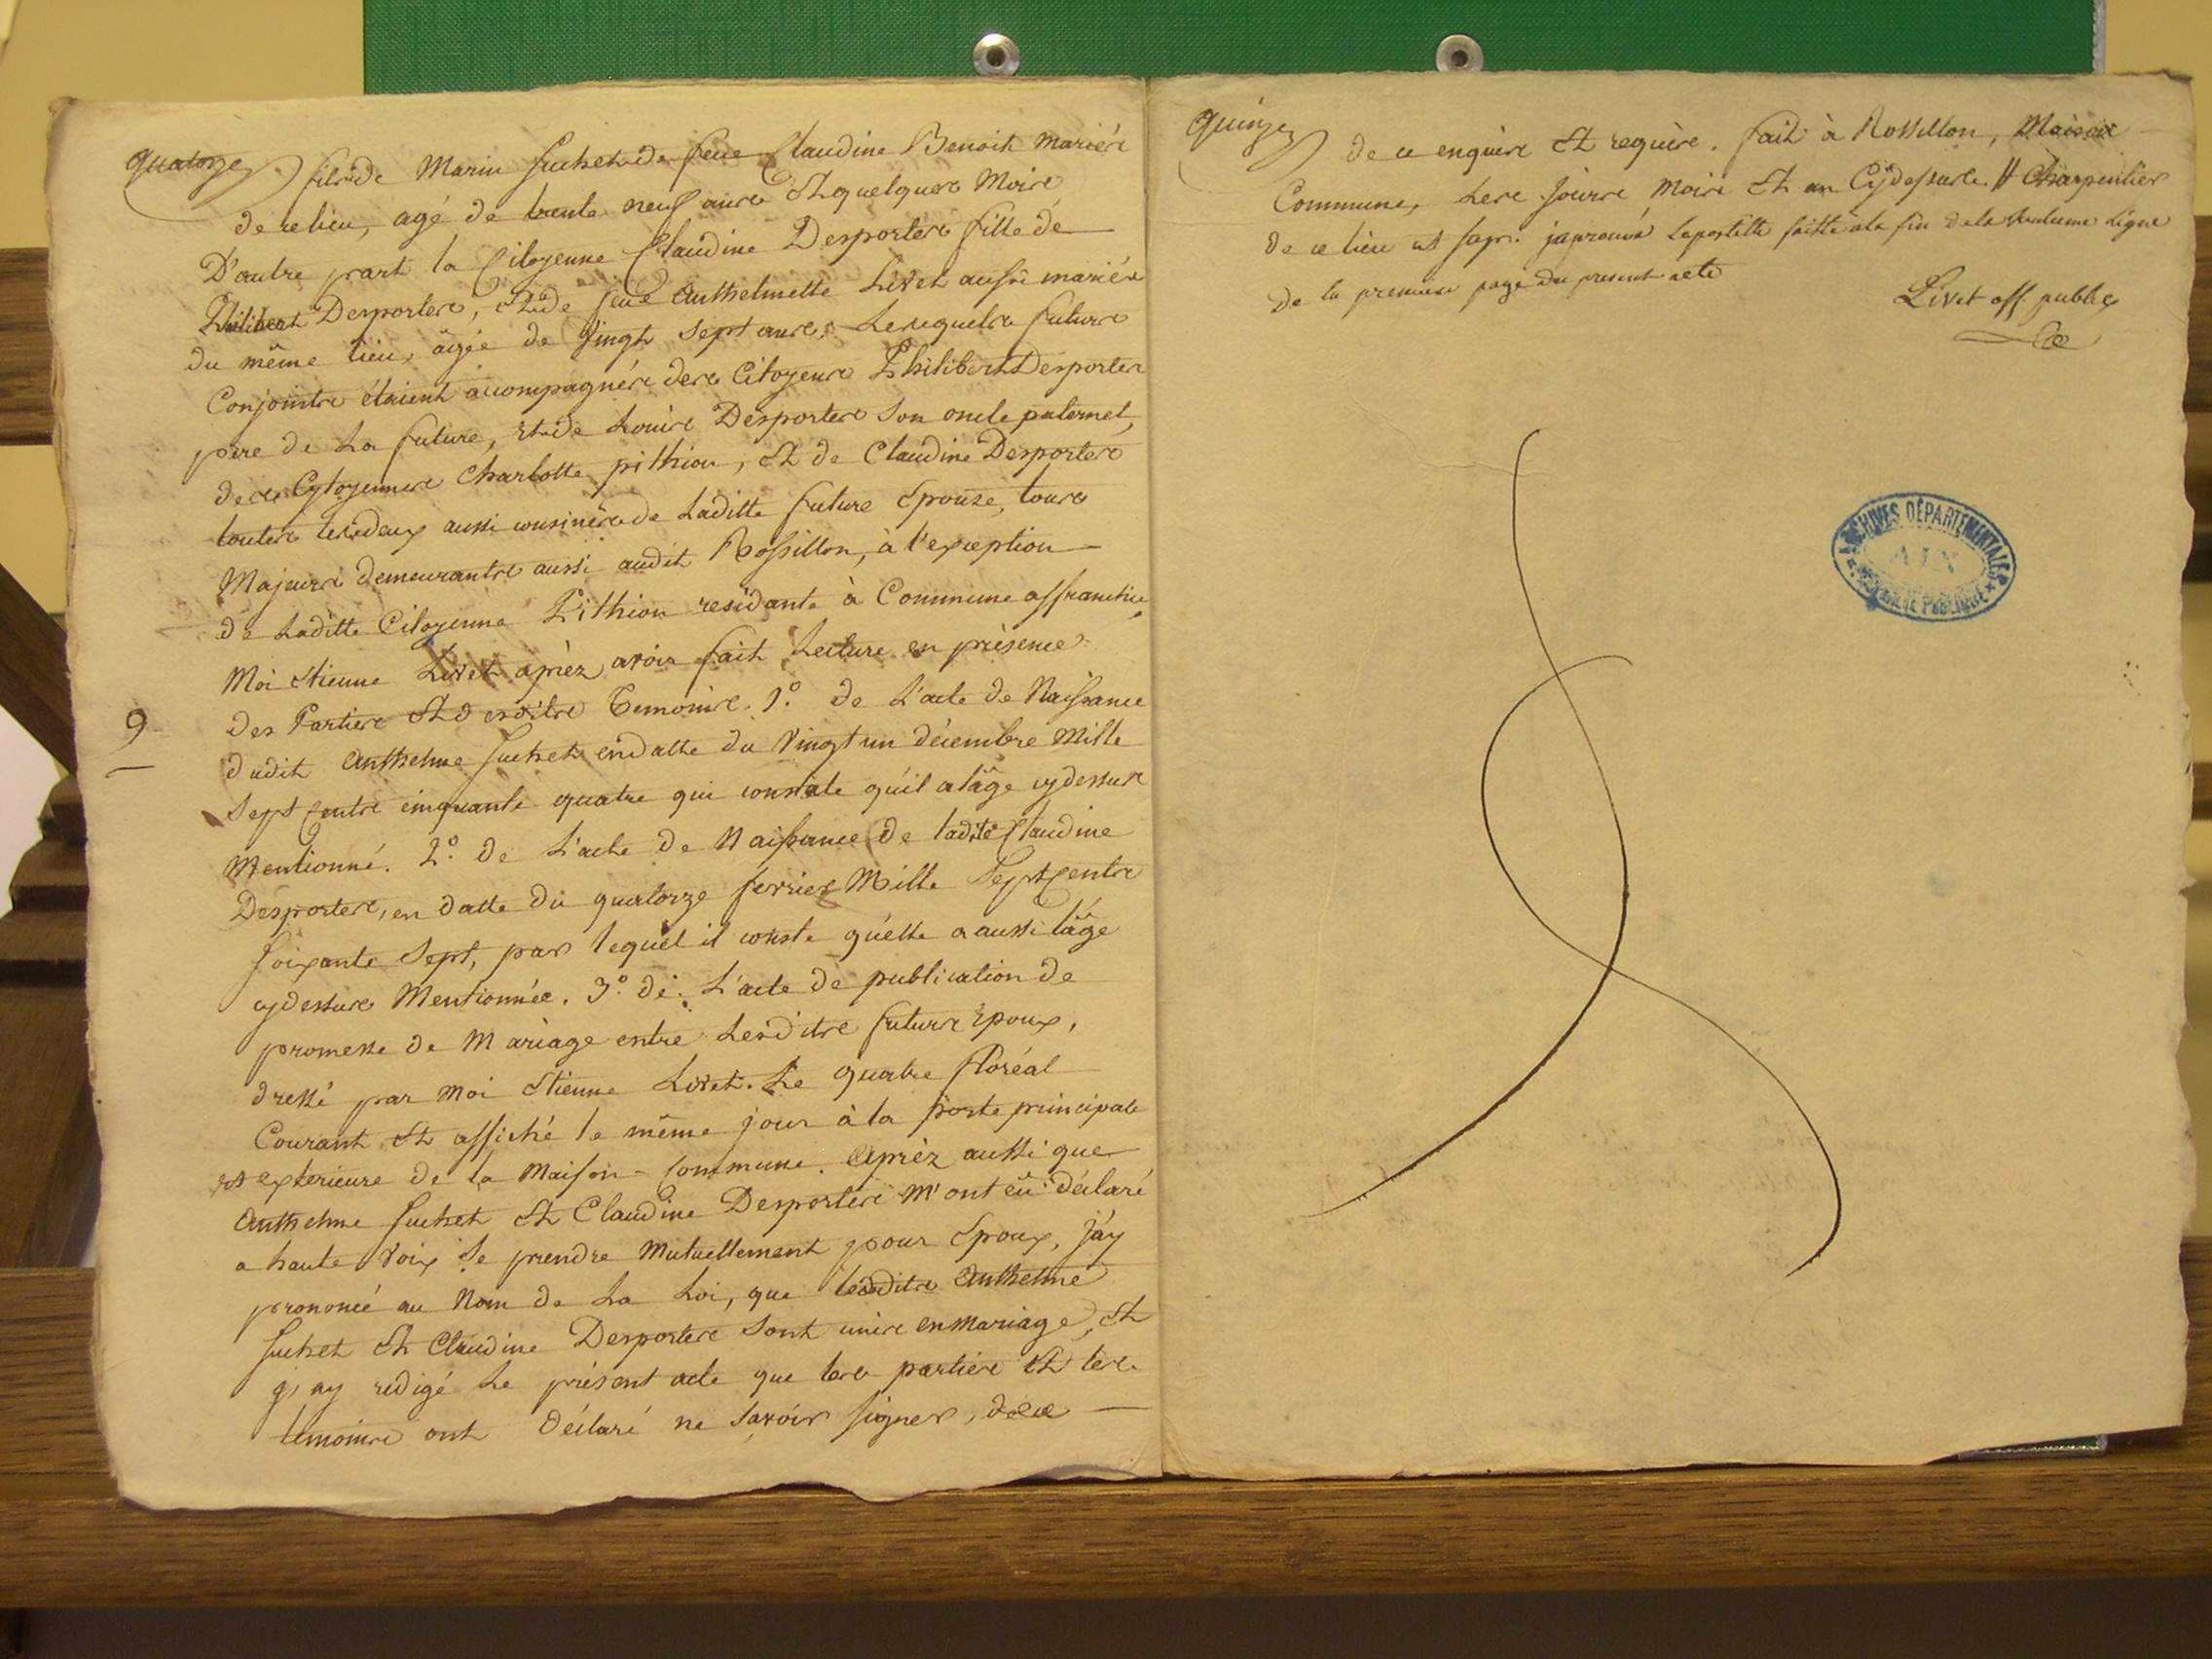 quatorze
fils de Marin Suchet de feue Claudine Benoit mariés
de ce lieu, agé de trente neuf ans et quelques Mois
D'autre part la Citoyenne Claudine Desportes fille de
Philibert Desportes, et de feue Anthelmette Livet aussi mariés
du même lieu, âgée de Vingt sept ans. Lesquels futurs
Conjoints étaient accompagnés des Citoyens Philibert Desportes
pere de La future, et de Louis Desportes son oncle paternel,
des Cytoyennes Charlotte pithion, et de Claudine Desportes
toutes les deux aussi cousines de Laditte future Epouse, tous
Majeurs demeurants aussi audit Rossillon, à l'exception
de Laditte Citoyenne Pithion residante à Commune affranchie,
Moi Etienne Livet après avoir fait Lecture en présence
des Parties et desdits Temoins. 1º. de L'acte de Naissance
dudit Anthelme Suchet en datte du Vingt un décembre Mille
Sept Cents cinquante quatre qui constate qu'il a lâge cy dessus
9
Mentionné. 2º. de L'acte de Naissance de ladite Claudine
Desportes, en datte du quatorze fevrier Mille Sept Cents
soixante Sept, par lequel il conste qu'elle a aussi lâge
cy dessus Mentionnée. 3º. de L'acte de publication de
promesse de Mariage entre Lesdits futurs Epoux,
dressé par moi Etienne Livet. Le quatre floréal
Courant et affiché le même jour à la porte principale
et exterieure de la Maison-Commune. Après aussi que
Anthelme Suchet et Claudine Desportes M'ont eû déclaré
a haute Voix Se prendre Mutuellement pour Epoux, j'ay
prononcé au Nom de La Loi, que lesdits Anthelme
Suchet et Claudine Desportes Sont unis en Mariage, et
j'ay redigé Le présent acte que les parties et les
temoins ont déclaré ne Savoir Signer, de ce
quinze
de ce enquis et requis. fait à Rossillon, Maison
Commune, Les Jours Mois et an Cy dessus. # Charpentier
de ce lieu
de la premiere page du present acte
Livet off. public
ARCHIVES DÉPARTEMENTALES
AIN
PROPRIÉTÉ PUBLIQUE